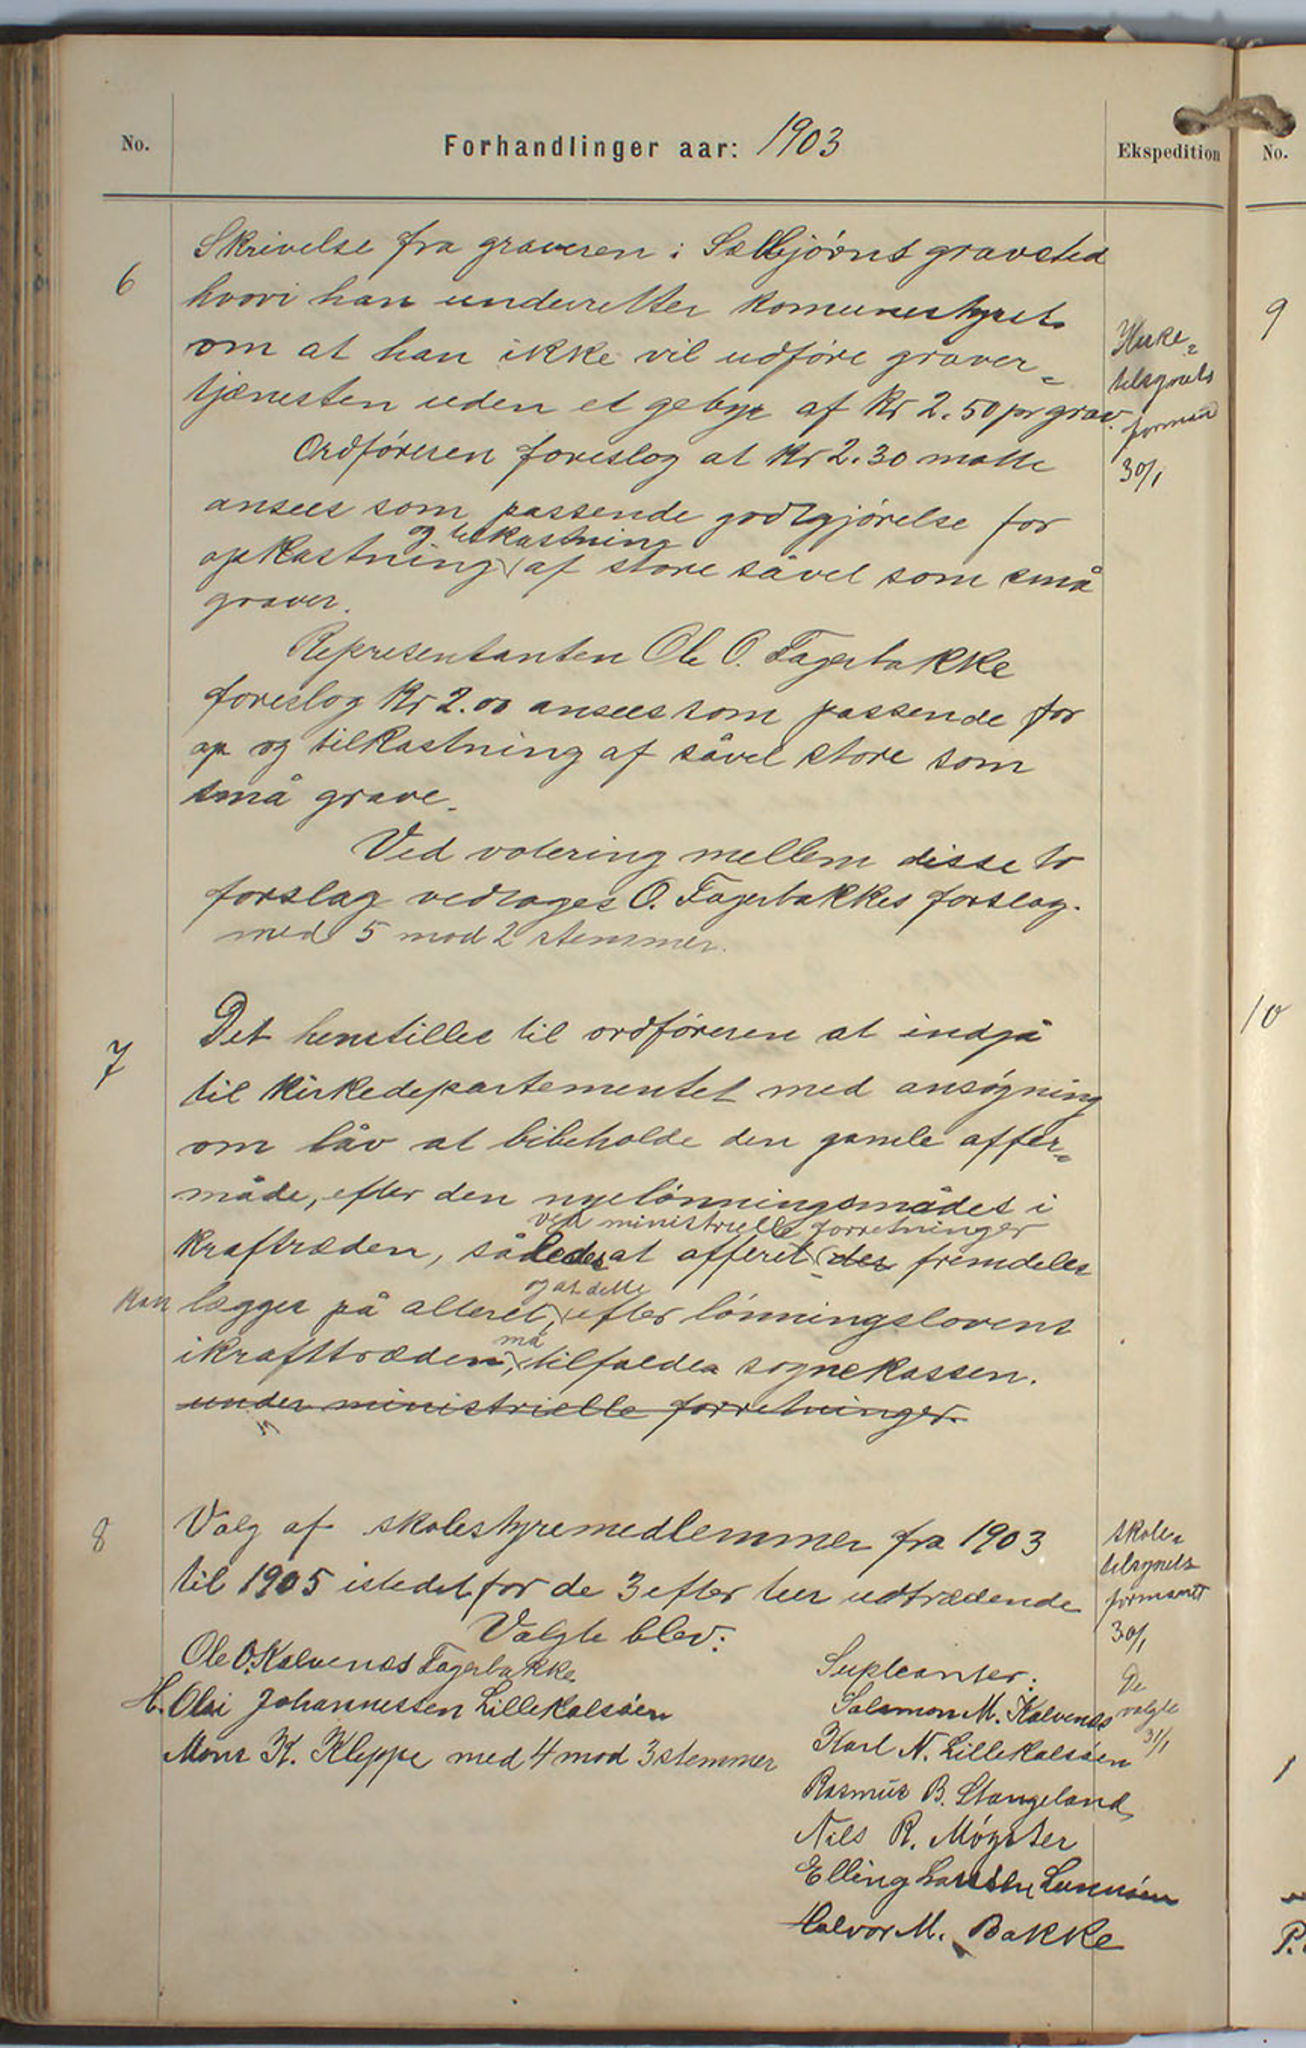 No.
Forhandlinger aar: 1903
Ekspedition
No.
6
Skrivelse fra graveren i Sælbjørns gravsted
hvori han underretter komunestyret
om at han ikke vil udføre graver-
tjænesten uden et gebyr af Kr 2.50 pr grav.
Kirke-
tilsynets
formand
30/1
Ordføreren foreslog at Kr 2.30 matte
ansees som passende godtgjørelse for
og tilkastning
opkastning af store såvel som små
graver.
Representanten Ole O. Fagerbakke
foreslog Kr 2.00 ansees som passende for
op og tilkastning af såvel store som
små grave.
Ved votering mellem disse to
forslag vedtages O. Fagerbakkes forslag.
med 5 mod 2 stemmer.
7
Det henstilles til ordføreren at indgå
til kirkedepartementet med ansøgning
om låv at bibeholde den gamle offer-
måde, efter den nye lønningsmådes i
ved ministrielle forretninger
kraftræden, således at offeret der fremdeles
og at dette
kan lægges på alteret, efter lønningslovens
må
ikrafttræden, tilfalder sognekassen.
under ministrielle forretninger.
8
Valg af skolestyremedlemmer fra 1903
til 1905 istedet for de 3 efter tur udtrædende
skole-
tilsynets
formand
30/1
Valgte blev:
Ole O. Kalvenes Fagerbakke
H. Olai Johannessen Lillekalsøen
Mons K. Kleppe med 4 mod 3 stemmer
Supleanter:
Salamon M. Kalvenes
Karl N. Lillekalsøen
Rasmus B. Stangeland
Nils R. Møgster
Elling Larssen Lunnøen
Halvor M. Bakke
De
valgte
31/1
9
10